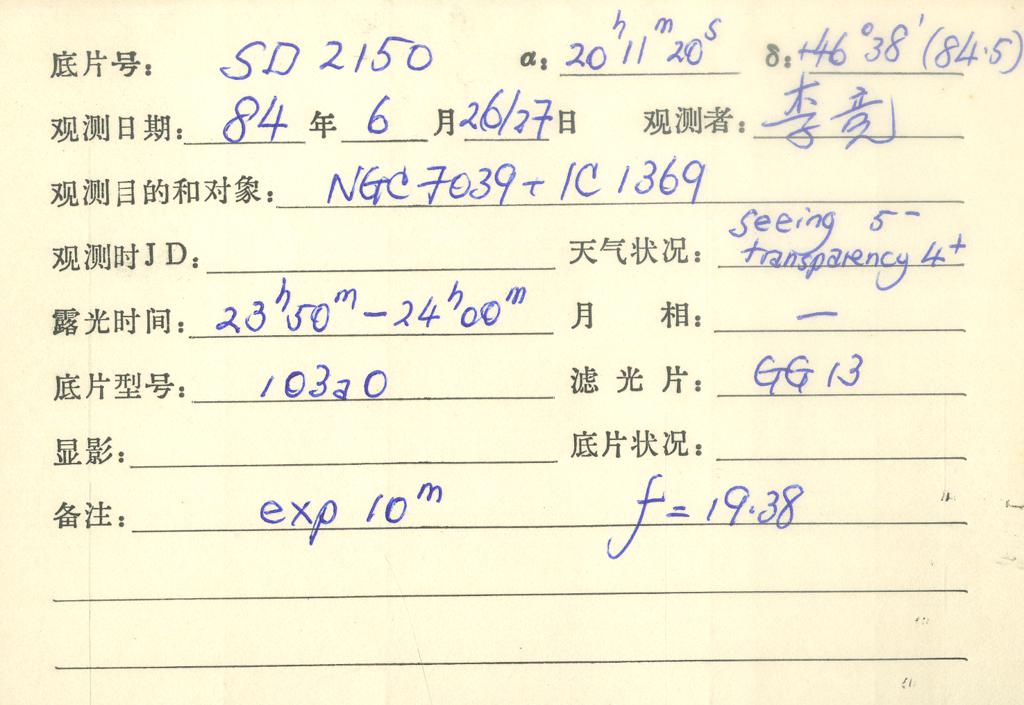 底片号: SD 2150 α: 20h11m20s δ: +46°38′(84.5)
观测日期: 84 年 6 月 26/27 日 观测者: 李竞
观测目的和对象: NGC 7039 + IC 1369
观测时JD: 天气状况: seeing 5- transparency 4+
露光时间: 23h50m - 24h00m 月 相: —
底片型号: 103aO 滤光片: GG 13
显影: 底片状况:
备注: exp 10m f = 19.38